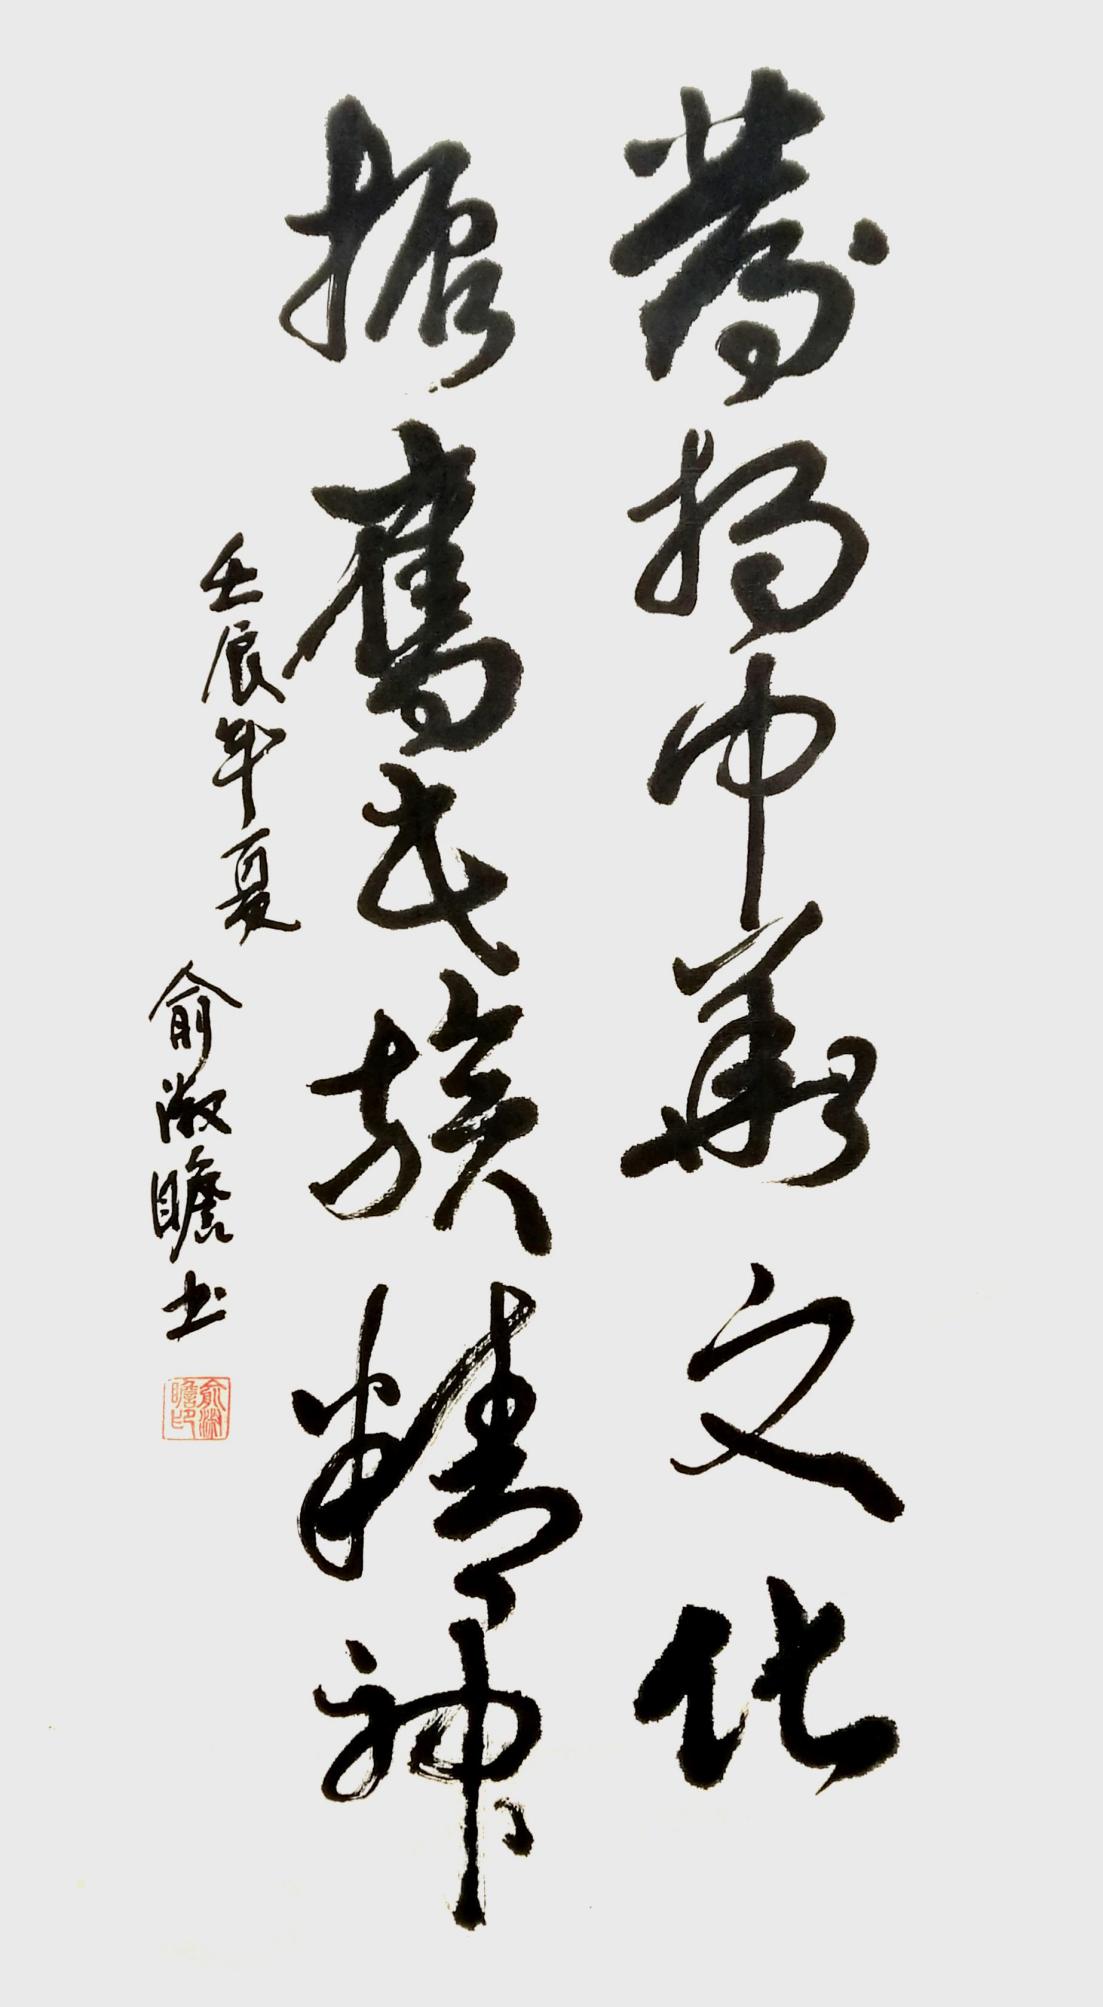 发扬中华文化
振奮民族精神
壬辰年夏
俞淑瞻书
俞淑瞻印